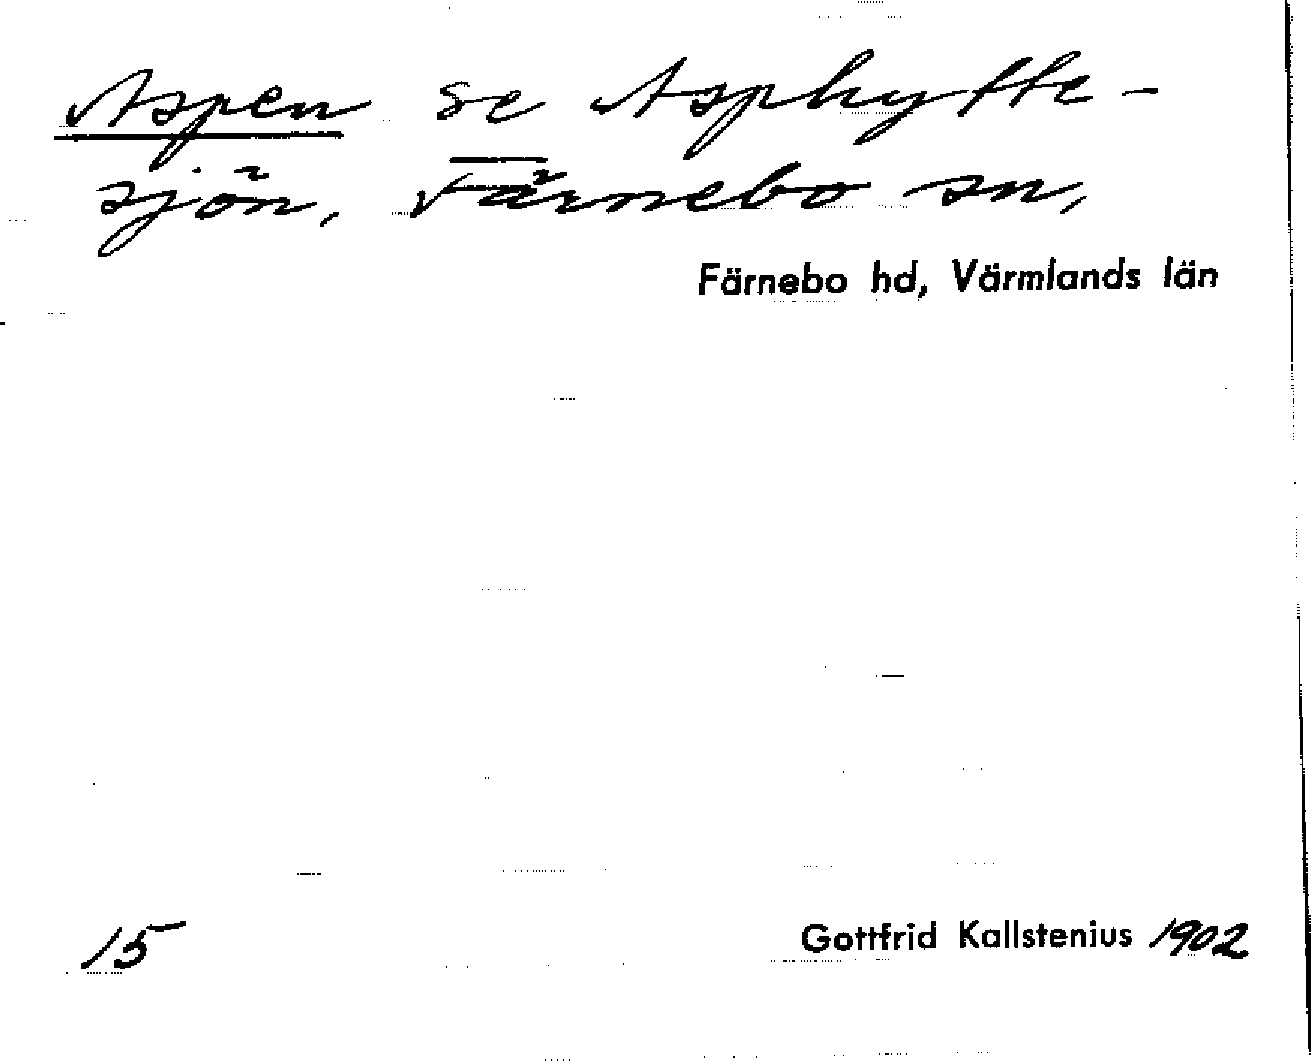 Aspen se Asphytte-
sjön, Färnebo sn,
Färnebo hd, Värmlands län
15
Gottfrid Kallstenius 1902